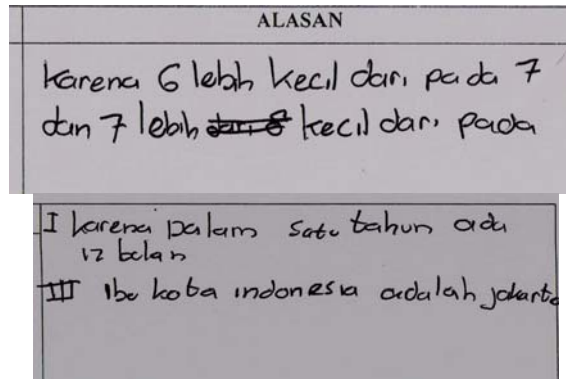 ALASAN
Karena 6 lebih kecil dari pada 7
dan 7 lebih dari 8 kecil dari pada
I karena Dalam satu tahun ada
12 bulan
III Ibu kota indonesia adalah jakarta